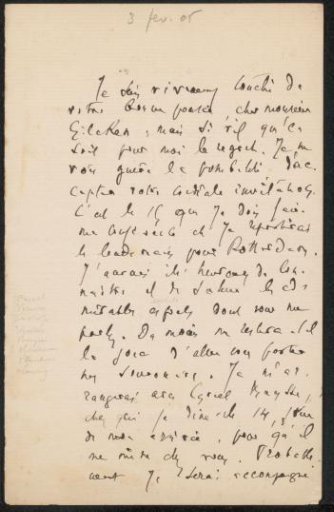 3 fev. 05
Je suis vivement touché de
votre bonne pensée cher monsieur
; mais si vif qu'en
soit pour moi le regret, je ne
vois guère la possibilité d'ac
cepter votre cordiale invitation.
C'est le 15 que je dois faire
ma conférence et je repartirai
le lendemain pour Rotterdam.
J'aurais été heureux de con
naître et de saluer les ad
mirables dont vous me
parlez. Du moins me restera-t-il
la joie d'aller vous porter
mes . Je m'ar
rangerai avec Cyriel Buysse,
chez qui je dîne le 14, jour
de mon arrivée, pour qu'il
me mène chez vous. Probable
ment je serai accompagné